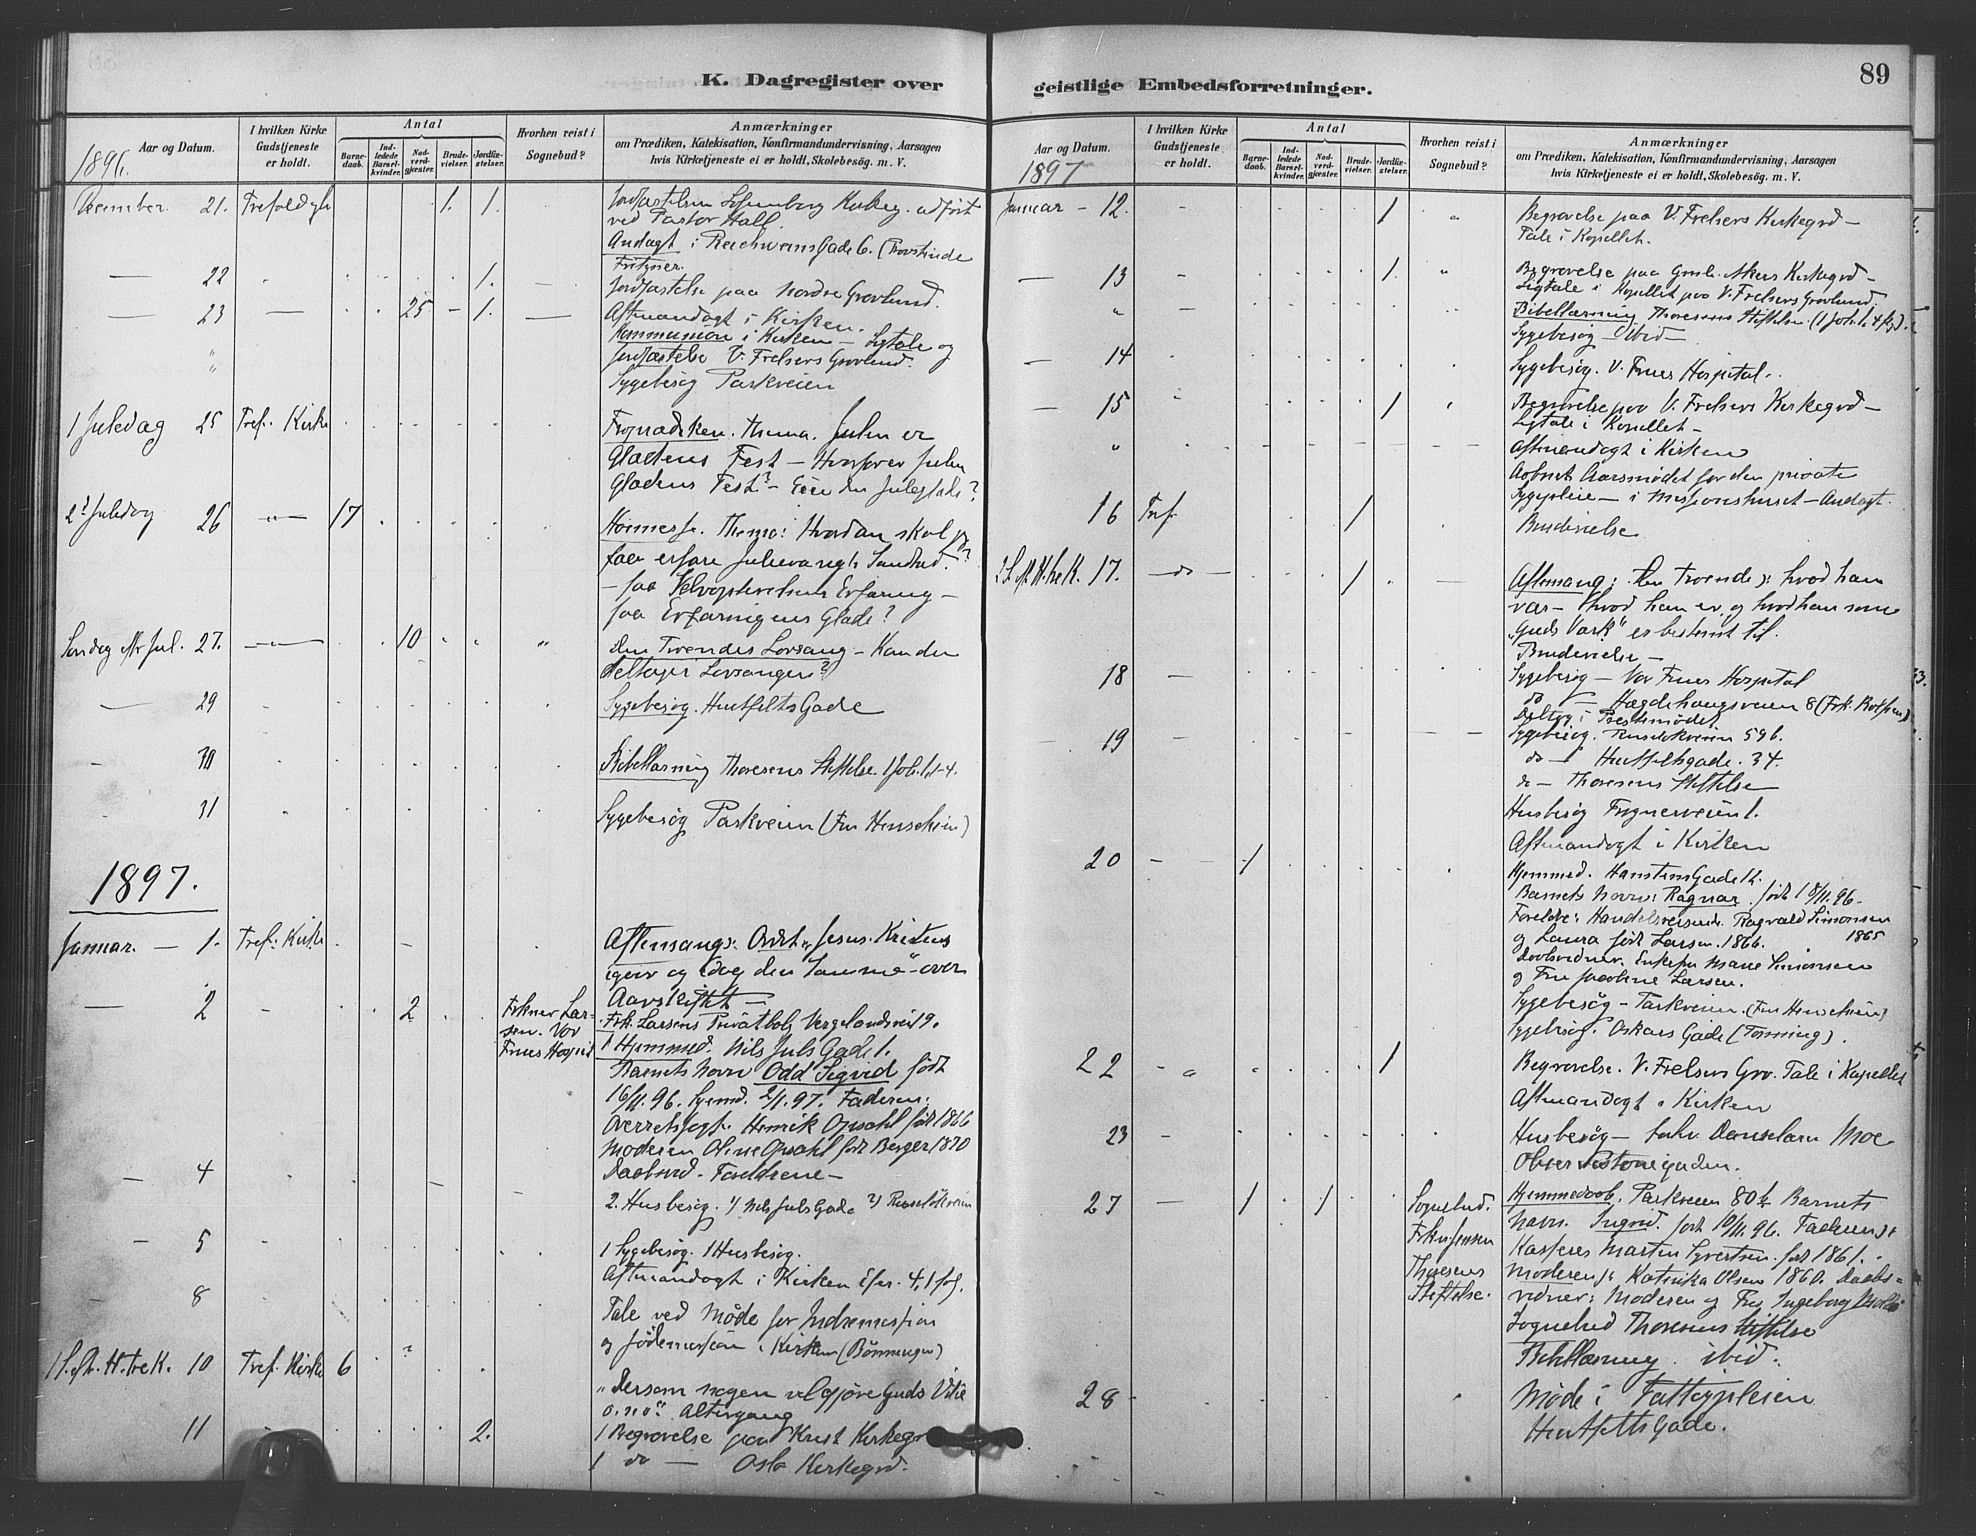 K. Dagregister over
Aar og Datum.
I hvilken Kirke Gudstjeneste er holdt.
Antal
Barnedaab.
Indledede Barselkvinder.
Nadverdgjæster.
Brudevielser.
Jordfæstelser.
Hvorhen reist i Sognebud?
Anmærkninger
om Prædiken, Katekisation, Konfirmandundervisning, Aarsagen
hvis Kirketjeneste ei er holdt, Skolebesøg. m. V.
1896.
December 21. 1. 1.
ved Pastor Hall
Andagt i Gade 6.
22 1. Jordfæstelse paa Nordre Gravlund.
23 25 1. Aftenandagt i Kirken.
Kommunion i Kirken - Ligtale og
Jordfæstelse V. Frelsers Gravlund.
Sygebesøg Parkveien
1 Juledag 25 Tref. Kirke Thema. Julen er
Glædens Fest - Hvorfor er Julen
Glædens Fest? - Eier du Juleglæde?
2 Juledag 26 17 Thema: Hvordan skal
faa erfare Sandhed?
Erfaring -
faa Erfaringens Glæde?
Søndag 27. 10 Den Troendes Lovsang - Kan du
deltage i Lovsangen?
29 Sygebesøg. Huitfeldts Gade
30 Bibellæsning Thoresens Stiftelse. 1 Joh. 1, 1-4.
31 Sygebesøg Parkveien (Fru Henschien)
1897.
Januar - 1. Tref. Kirke Aftensang: Ordet "Jesus Kristus
igaar og idag den Samme" - over
Aarsskiftet -
2 2 Frkner Larsen. Vor Frues Hospit
Frk. Larsens Privatbolig Vergelandsvei 9.
1 Hjemmed. Nils Juls Gade 1.
Barnets Navn Odd Sigvid født
16/11. 96. Hjemd. 2/1. 97. Faderen:
Henrik Opsahl født 1866
Moderen Oline Opsahl født Berger 1870
- Forældrene -
4 2. Husbesøg. 1) Nils Juls Gade 2) Ruseløkveien
5 1 Sygebesøg. 1 Husbesøg.
Aftenandagt i Kirken
8 Tale ved Møde for Indremission
og Jødemission i Kirken
1 S. e. H. tre K. 10 Tref. Kirke 6 "Dersom nogen vil gjøre Guds Vilie
o.s.v." Altergang
11 2. 1 Begravelse paa Krist Kirkeg
1 do - Oslo Kirkegrd.
geistlige Embedsforretninger.
89
Aar og Datum.
I hvilken Kirke Gudstjeneste er holdt.
Antal
Barnedaab.
Indledede Barselkvinder.
Nadverdgjæster.
Brudevielser.
Jordfæstelser.
Hvorhen reist i Sognebud?
Anmærkninger
om Prædiken, Katekisation, Konfirmandundervisning, Aarsagen
hvis Kirketjeneste ei er holdt, Skolebesøg. m. V.
1897
Januar - 12. 1 Begravelse paa V. Frelsers Kirkegrd -
Tale i Kapellet.
13 1. Begravelse paa Gml. Akers Kirkegrd -
Ligtale i Kapellet paa V. Frelsers Gravlund.
Bibellæsning Thoresens Stiftelse
Sygebesøg - Ibid -
14 Sygebesøg. V. Frues Hospital.
15 1 Begravelse paa V. Frelsers Kirkegrd -
Ligtale i Kapellet -
Aftenandagt i Kirken
Aabnet Aarsmødet for den private
Sygepleie - i Missionshuset - Andagt.
16 Tref. 1 Brudevielse
2 S. e. H. tre K. 17. - do - 1 Aftensang: Den Troende: hvad han
var - hvad han er og hvad han som
"Guds Værk" er bestemt til.
Brudevielse -
18 Sygebesøg - Vor Frues Hospital
do - Hægdehaugsveien 8
Deltog i Præstemødet
19 Sygebesøg. Ruseløkveien 59 b.
do - Huitfeldsgade. 34.
do - Thoresens Stiftelse
Husbesøg Frognerveien 1.
Aftenandagt i Kirken
20 1 Hjemmed. Hansteens Gade 12.
Barnets Navn: Ragnar født 18/11. 96.
Forældre: Handelsreisende Ragvald Simonsen 1865
og Laura født Larsen. 1866.
Daabsvidner. Enkefru Marie Simonsen
og Fru Jacobine Larsen.
Sygebesøg - Parkveien. (Fru Henschien)
Sygebesøg. Oskars Gade
22 1 Begravelse. V. Frelsers Grv. Tale i Kapellet
Aftenandagt i Kirken
23 Husbesøg - Moe
27 1 1 Sognebud. Frkn Jensen Thoresens Stiftelse.
Hjemmedaab. Parkveien 80 Barnets
Navn. Ingrid. født 10/11. 96. Faderen:
Martin Syvertsen. født 1861.
Moderen: Katinka Olsen 1860. Daabs=
vidner: Moderen og Frk. Ingeborg
Sognebud Thoresens Stiftelse
Bibellæsning ibid.
28 Møde i Fattigpleien
Huitfelts Gade.